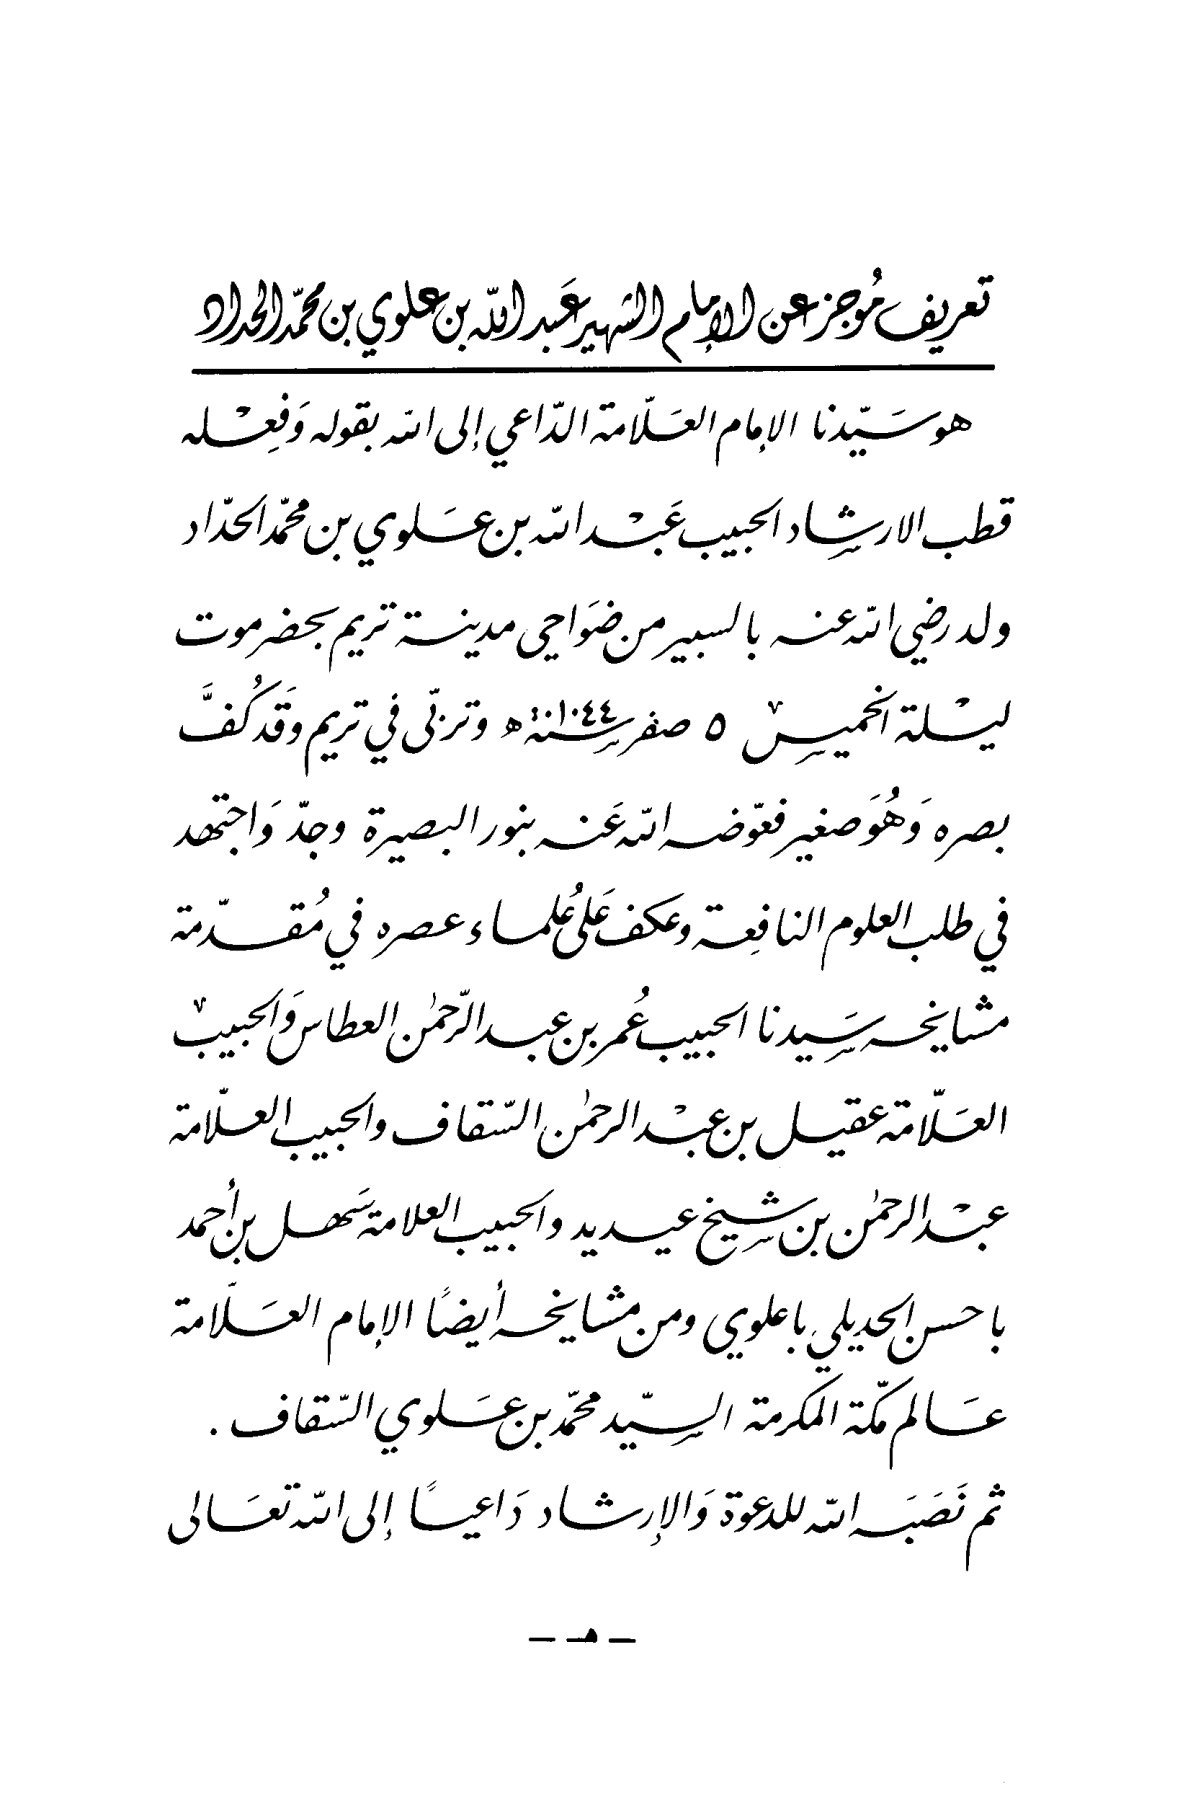 تعريف مُوجز عن الإمام الشهير عَبد الله بن علوي بن محمّد الحداد
هو سَيّدنا الإمام العَلّامة الدّاعي إلى الله بقوله وَفِعْله
قطب الارشاد الحبيب عَبْد الله بن عَلوي بن محمّد الحدّاد
ولد رضي الله عنه بالسبير من ضَوَاحي مدينة تريم بحضرموت
ليْلة الخميس ٥ صفر سنة ١٠٤٤ ه وتربّى في تريم وَقَد كُفَّ
بصره وَهُوَ صغير فعوّضه الله عَنه بنور البصيرة وجدّ وَاجتهد
في طلب العلوم النافِعة وعكف عَلى عُلماء عصره في مُقدّمة
مشايخه سَيدنا الحبيب عُمر بن عبد الرّحمٰن العطاس وَالحبيب
العَلّامة عقيل بن عبْد الرحمٰن السّقاف والحبيب العلّامة
عبْد الرحمٰن بن شيخ عيديد والحبيب العلامة سَهل بن أحمد
باحسن الحديلي باعلوي ومن مشايخه أيضًا الإمام العَلّامة
عَالم مكّة المكرمة السيّد محمّد بن عَلوي السّقاف .
ثم نَصَبَه الله للدعوة وَالإرشاد دَاعيًا إلى الله تعَالى
— هـ —